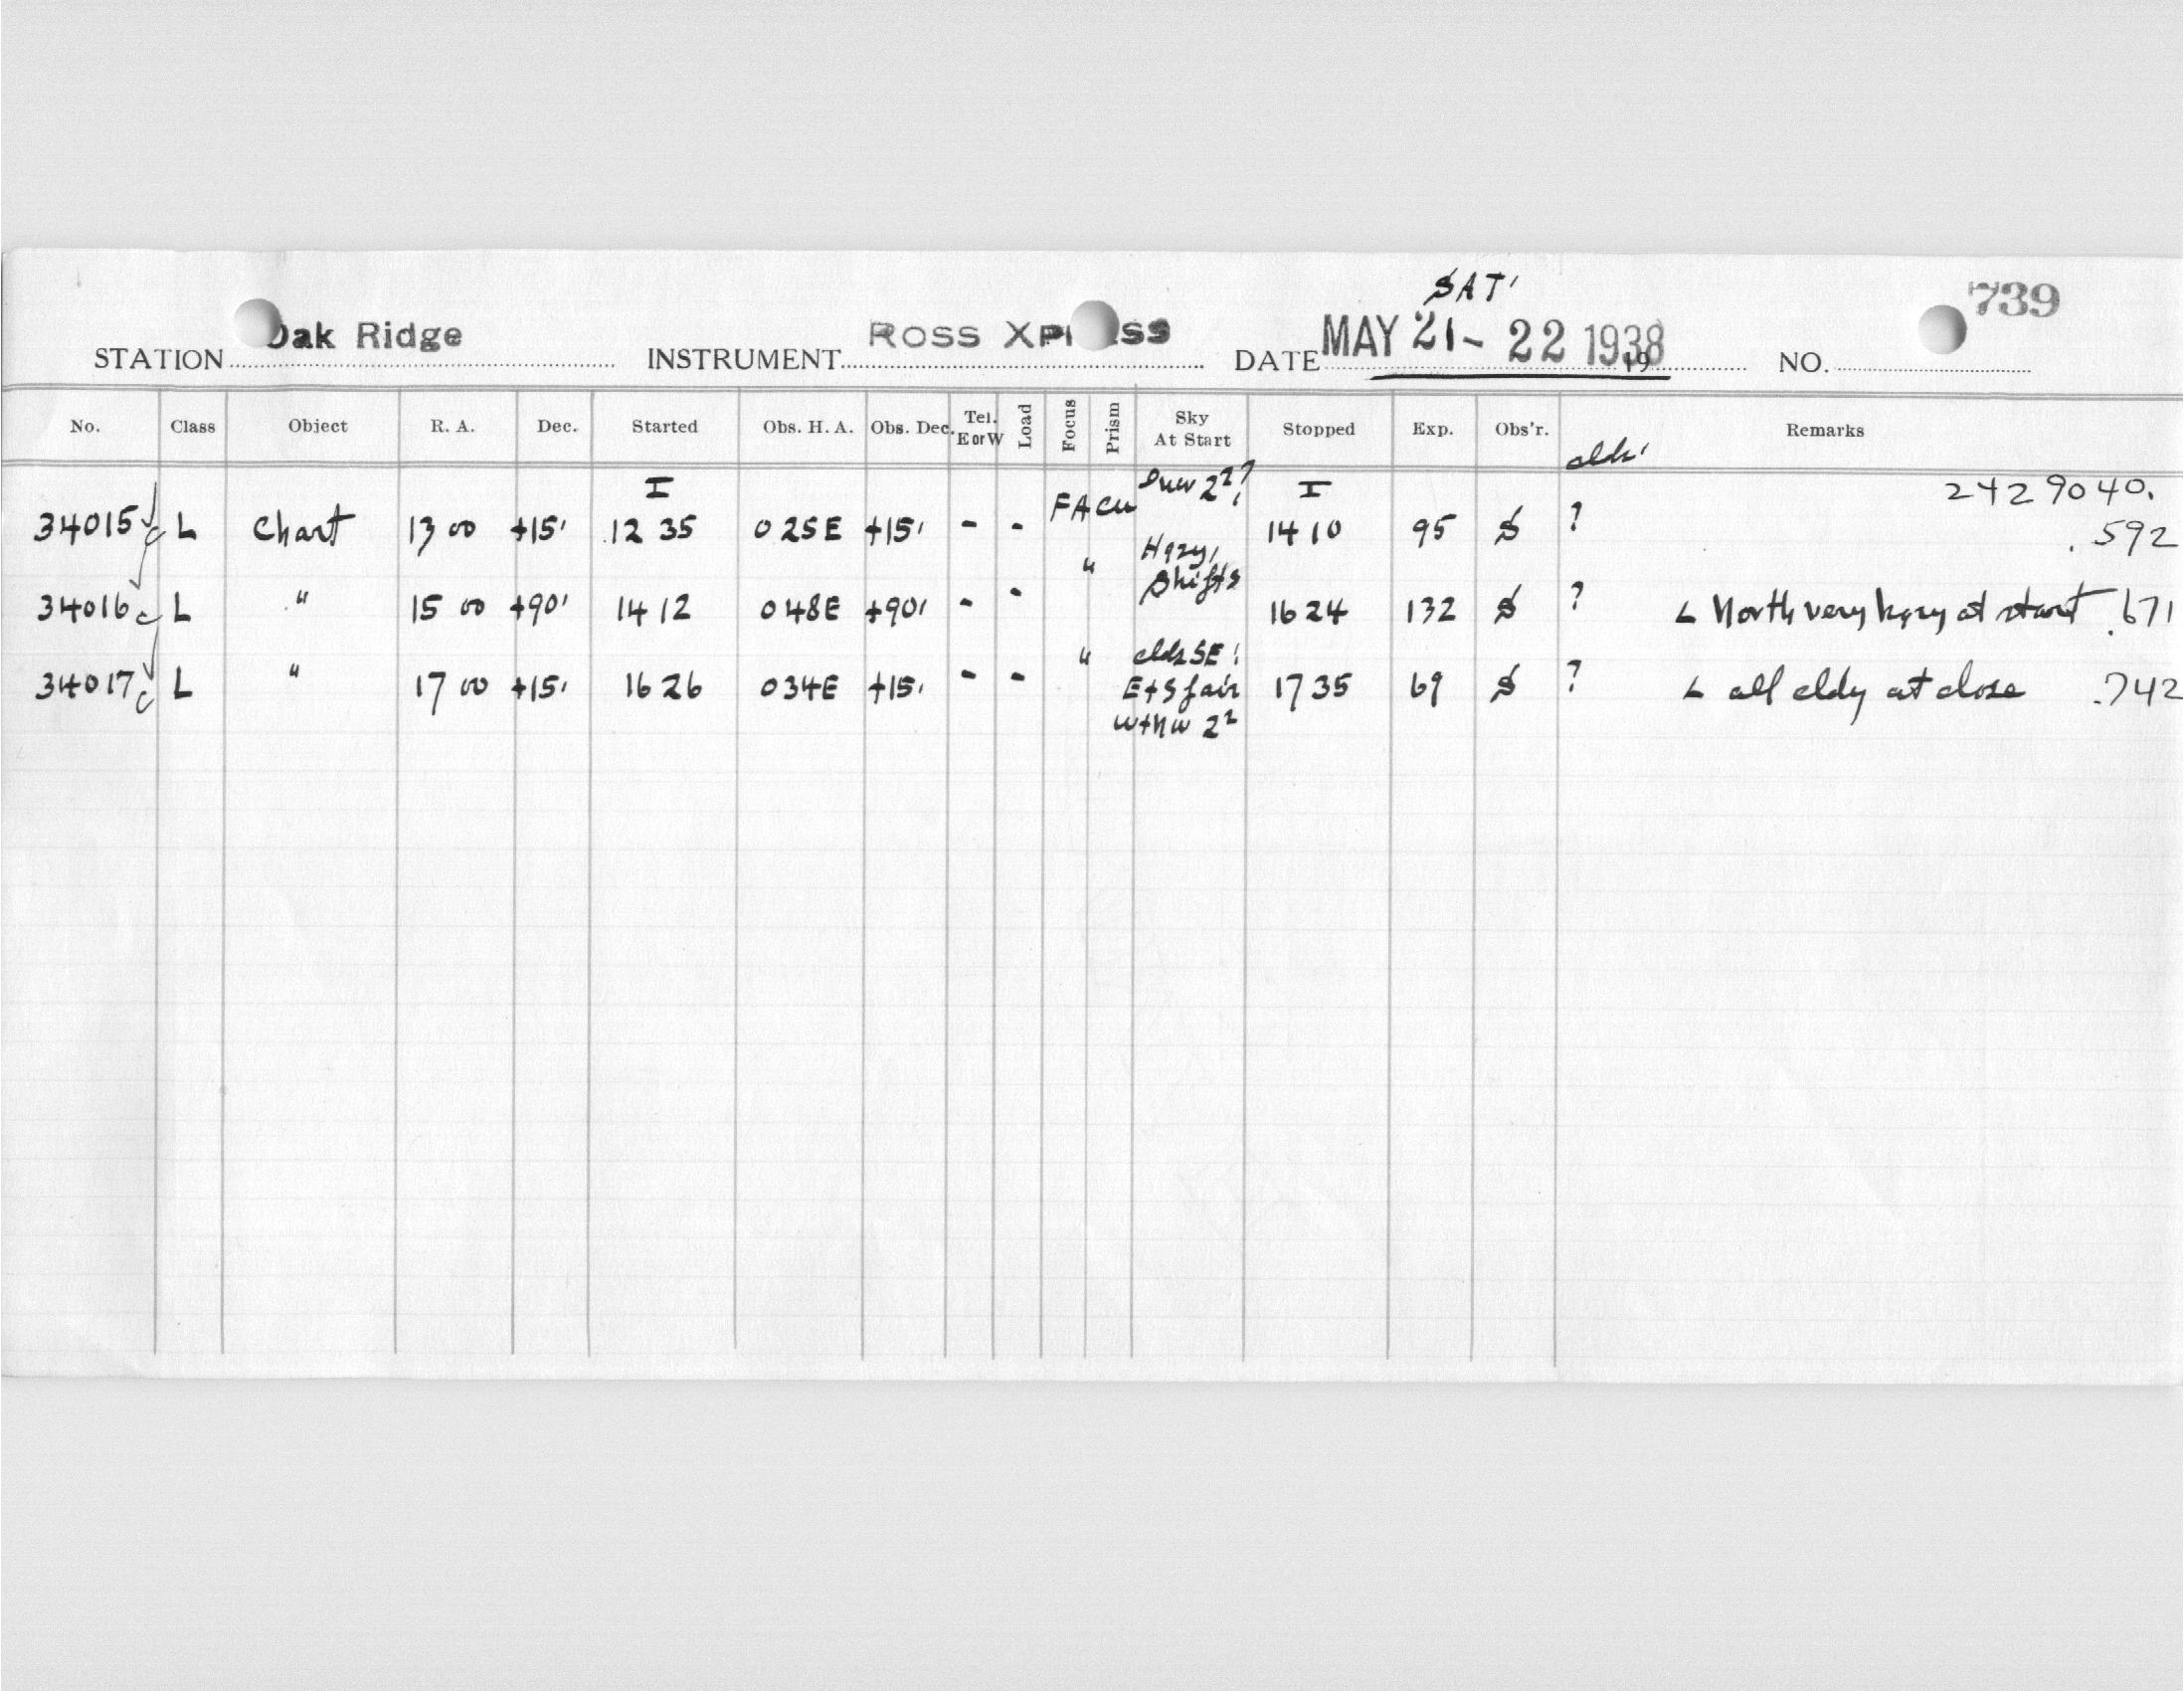 SAT'
739
STATION Oak Ridge INSTRUMENT ROSS XPRESS DATE MAY 21-22 1938 19 NO.
No. Class Object R. A. Dec. Started Obs. H. A. Obs. Dec. Tel. E or W Load Focus Prism Sky At Start Stopped Exp. Obs'r. clds' Remarks
I I 2429040.
34015 c L Chart 13 00 +15' 12 35 0 25E +15' - - FA cu 22? 14 10 95 S ? .592
34016 c L " 15 00 +90' 14 12 0 48E +90' - - " Hazy, Shifts 16 24 132 S ? L North very hazy at start .671
34017 c L " 17 00 +15' 16 26 0 34E +15' - - " clds SE! E+S fair W+NW 22 17 35 69 S ? L all cldy at close .742